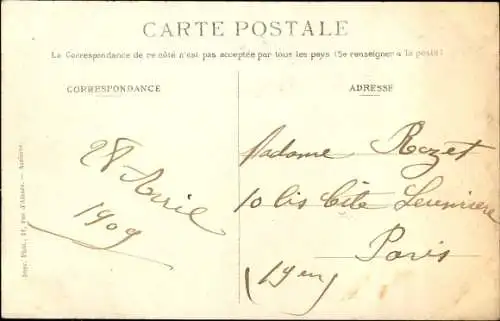 CARTE POSTALE
La Correspondance de ce côté n'est pas acceptée par tous les pays (Se renseigner à la poste)
CORRESPONDANCE
28 Avril
1909
ADRESSE
Madame Rozet
10 bis Cité
Paris
(19em)
rue d'Alsace. — Asnières